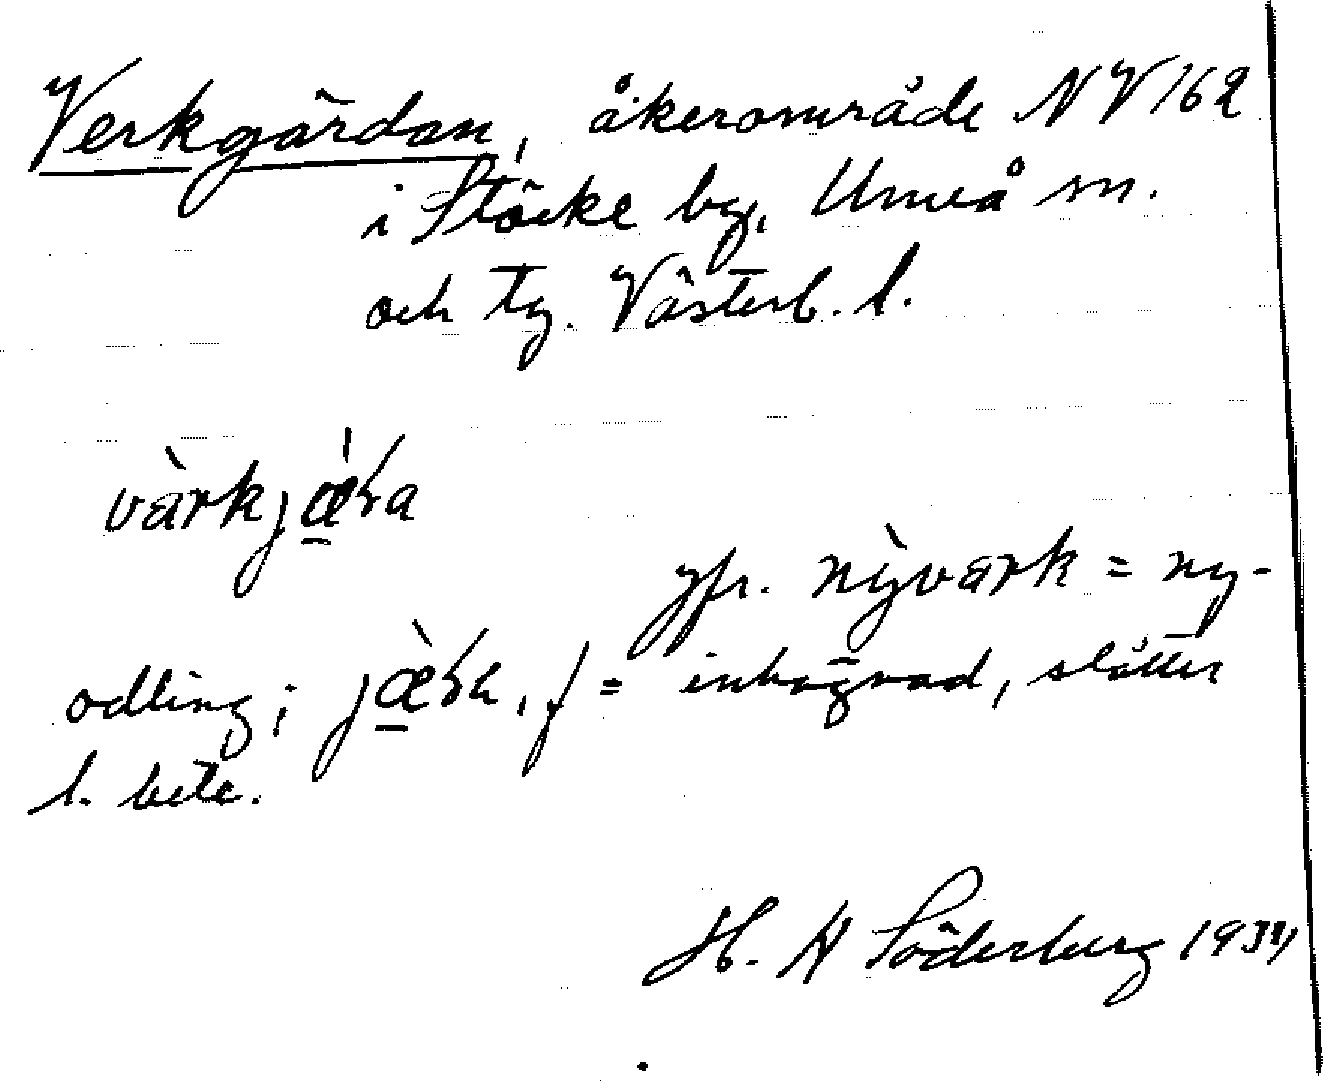 Verkgärdan, åkerområde NV 162
i Stöcke by, Umeå sn.
och tg. Västerb. l.
jfr. nỳvärk = ny-
odling; f = inhägnad, slåtter
l. bete.
H. A Söderberg